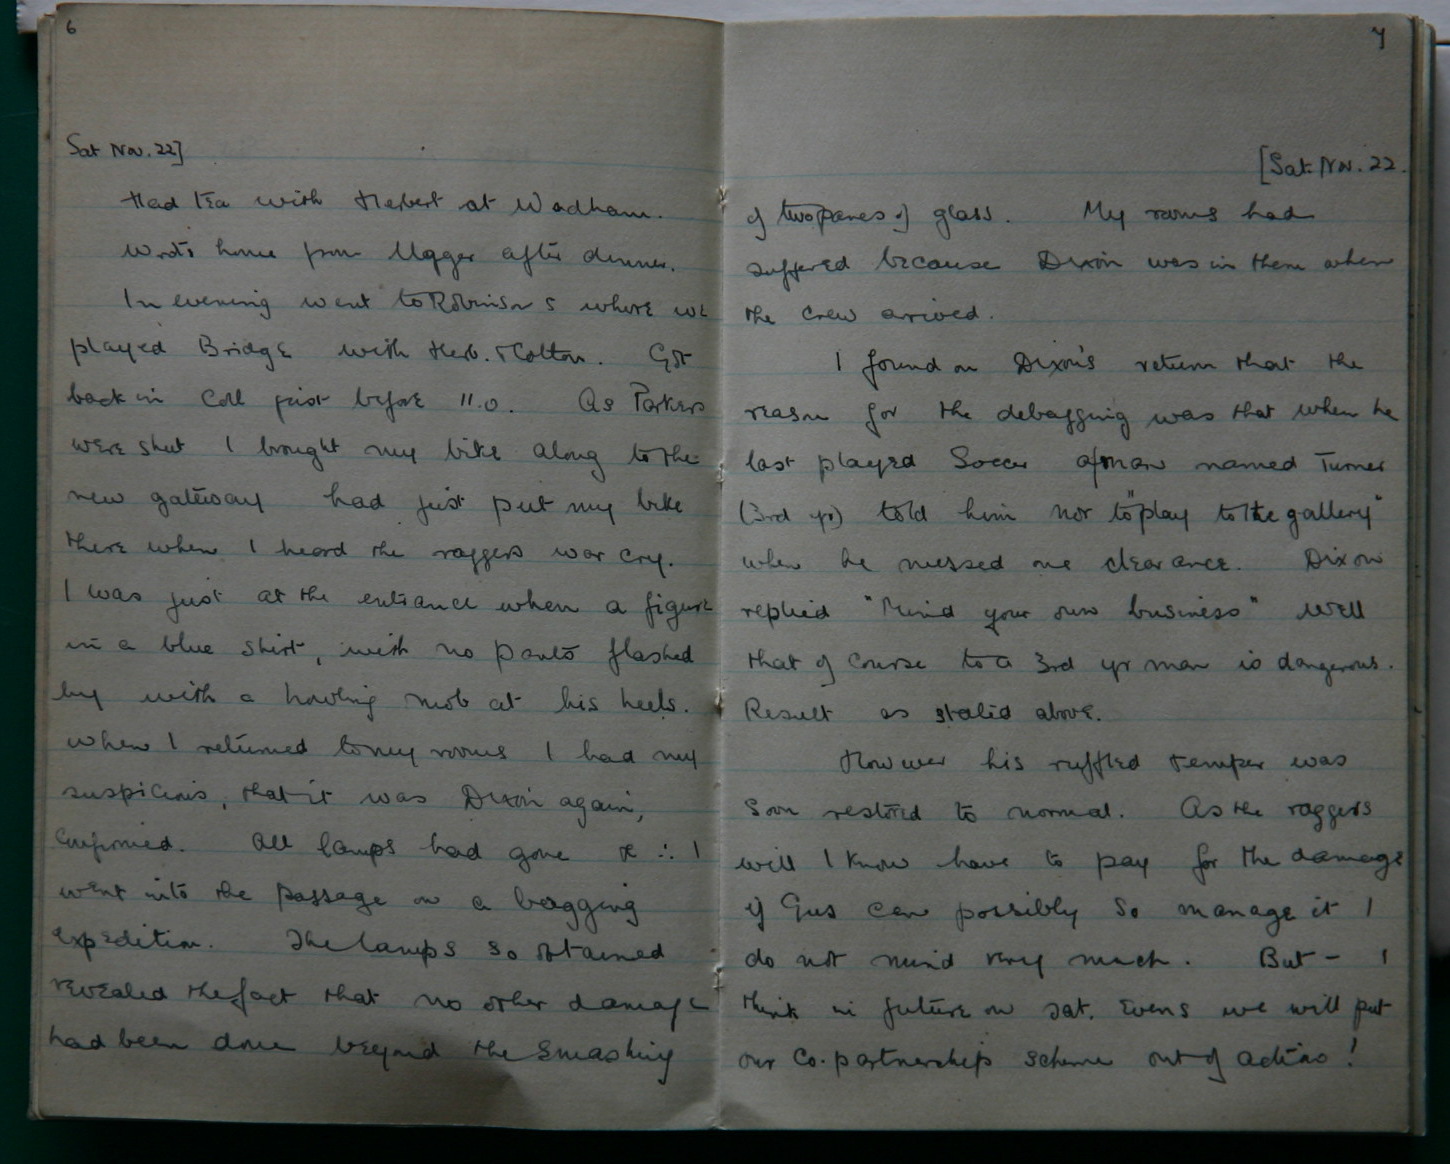 6
Sat Nov. 22]
Had tea with Herbert at Wadham.
Wrote home from Ugger after dinner.
In evening went to Robinson's where we
played Bridge with Herb. & Cotton. Got
back in Coll just before 11.0. As Parkers
were shut I brought my bike along to the
new gateway had just put my bike
there when I heard the raggers war cry.
I was just at the entrance when a figure
in a blue shirt, with no pants flashed
by with a howling mob at his heels.
When I returned to my rooms I had my
suspicions, that it was Dixon again,
confirmed. All lamps had gone & ∴ I
went into the passage on a bagging
expedition. The lamps so obtained
revealed the fact that no other damage
had been done beyond the smashing
7
[Sat. Nov. 22.
of two panes of glass. My rooms had
suffered because Dixon was in them when
the crew arrived.
I found on Dixon's return that the
reason for the debagging was that when he
last played Soccer a man named Turner
(3rd yr) told him not to "play to the gallery"
when he missed one clearance. Dixon
replied "Mind your own business" Well
that of course to a 3rd yr man is dangerous.
Result as stated above.
However his ruffled temper was
soon restored to normal. As the raggers
will I know have to pay for the damage
if Gus can possibly so manage it I
do not mind very much. But – I
think in future on Sat. Evens we will put
our Co-partnership scheme out of action!